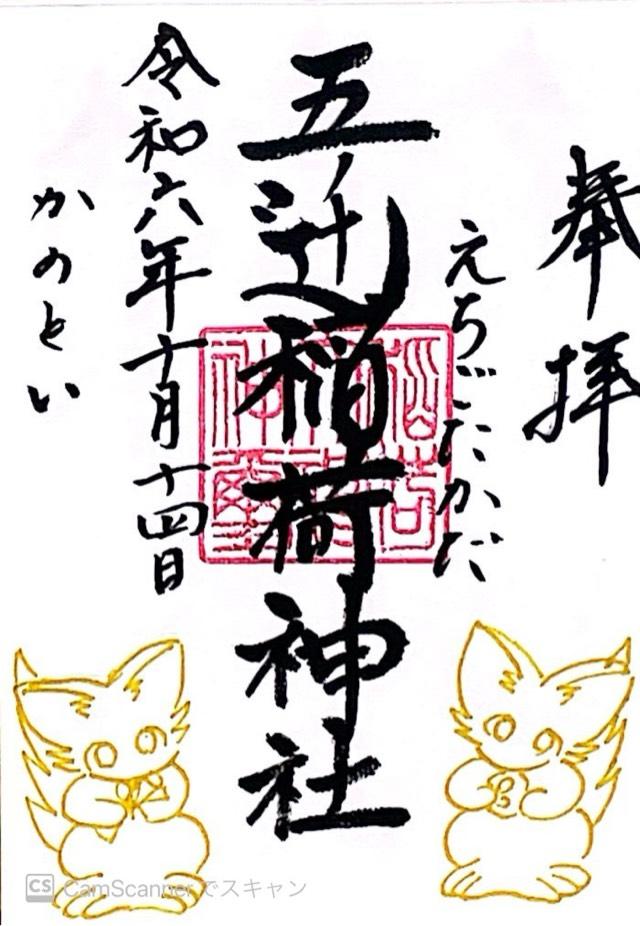 奉拝
えちごたかだ
五辻稲荷神社
令和六年十月十四日
かのとい
CS CamScanner でスキャン